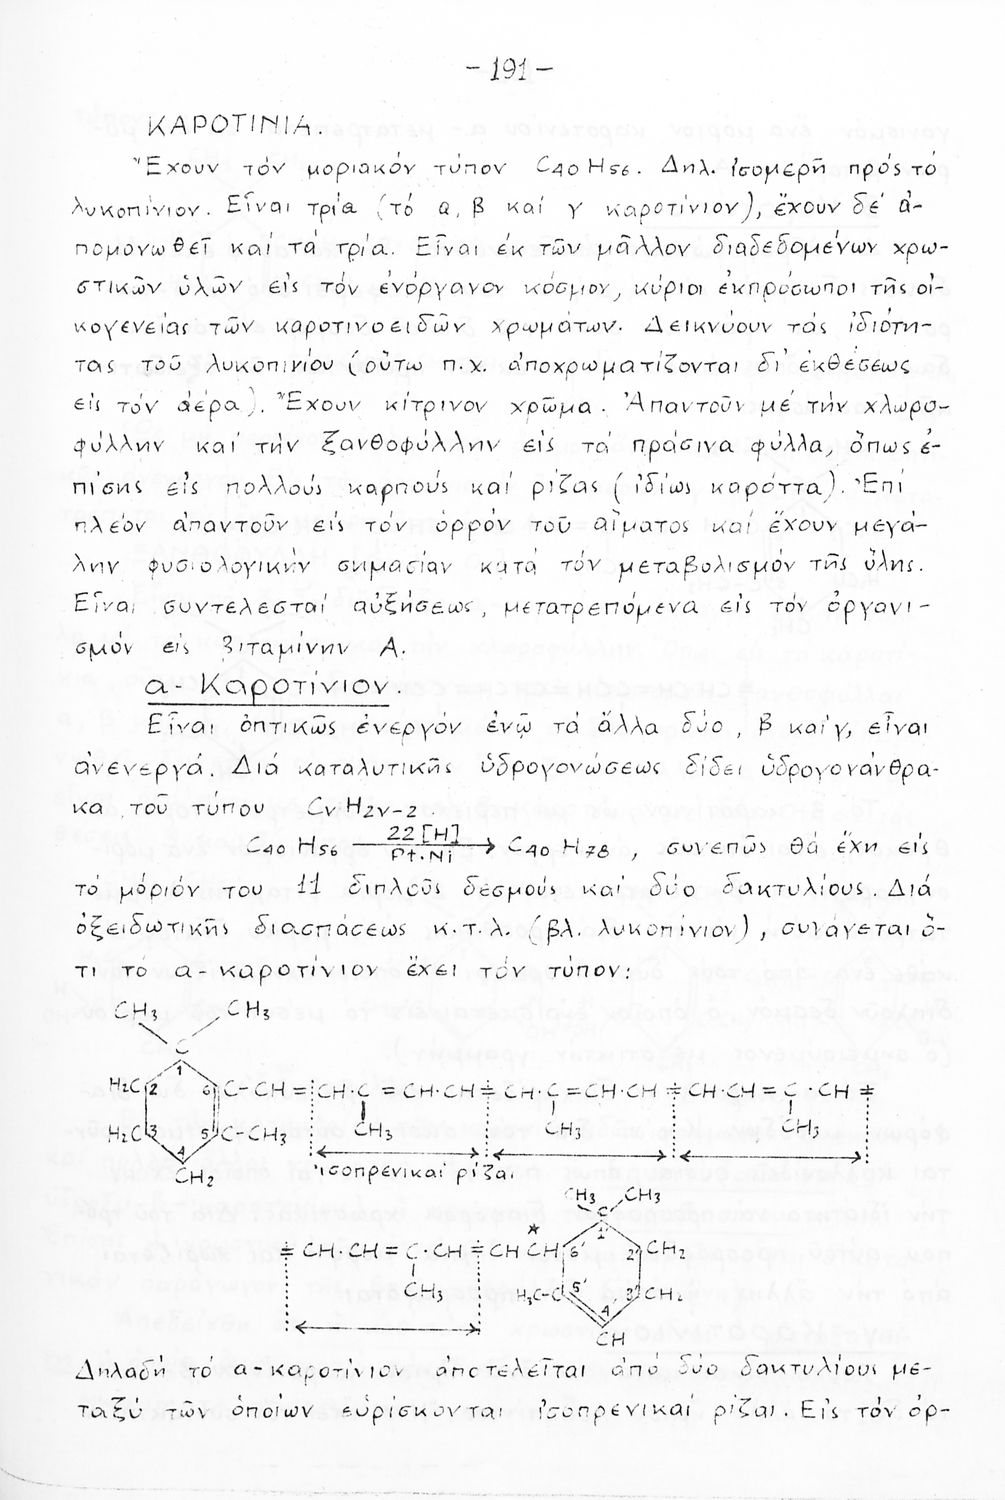 - 191 -
ΚΑΡΟΤΙΝΙΑ.
Ἔχουν τόν μοριακόν τύπον C40H56. Δηλ. ἰσομερῆ πρός τό
λυκοπίνιον. Εἶναι τρία (τό α, β καί γ καροτίνιον), ἔχουν δέ ἀ-
πομονωθεῖ καί τά τρία. Εἶναι ἐκ τῶν μᾶλλον διαδεδομένων χρω-
στικῶν ὑλῶν εἰς τόν ἐνόργανον κόσμον, κύριοι ἐκπρόσωποι τῆς οἰ-
κογενείας τῶν καροτινοειδῶν χρωμάτων. Δεικνύουν τάς ἰδιότη-
τας τοῦ λυκοπινίου (οὕτω π.χ. ἀποχρωματίζονται δι' ἐκθέσεως
εἰς τόν ἀέρα). Ἔχουν κίτρινον χρῶμα. Ἀπαντοῦν μέ τήν χλωρο-
φύλλην καί τήν ξανθοφύλλην εἰς τά πράσινα φύλλα, ὅπως ἐ-
πίσης εἰς πολλούς καρπούς καί ρίζας (ἰδίως καρόττα). Ἐπί
πλέον ἀπαντοῦν εἰς τόν ὀρρόν τοῦ αἵματος καί ἔχουν μεγά-
λην φυσιολογικήν σημασίαν κατά τόν μεταβολισμόν τῆς ὕλης.
Εἶναι συντελεσταί αὐξήσεως, μετατρεπόμενα εἰς τόν ὀργανι-
σμόν εἰς Βιταμίνην Α.
α- Καροτίνιον.
Εἶναι ὀπτικῶς ἐνεργόν ἐνῷ τά ἄλλα δύο, β καί γ, εἶναι
ἀνενεργά. Διά καταλυτικῆς ὑδρογονώσεως δίδει ὑδρογονάνθρα-
κα τοῦ τύπου CνH2ν-2
C40H56 22[H] Pt.Ni → C40H78, συνεπῶς θά ἔχη εἰς
τό μόριόν του 11 διπλοῦς δεσμούς καί δύο δακτυλίους. Διά
ὀξειδωτικῆς διασπάσεως κ.τ.λ. (βλ. λυκοπίνιον), συνάγεται ὅ-
τι τό α-καροτίνιον ἔχει τόν τύπον:
CH3 CH3
C
1
H2C 2 6 C-CH = CH·C = CH·CH = CH·C = CH·CH = CH·CH = C·CH =
H2C 3 5 C-CH3 CH3 CH3 CH3
4
CH2 ἰσοπρενικαί ρίζαι
CH3 CH3
C
1'
= CH·CH = C·CH = CH CH * 6' 2' CH2
CH3 H3C-C 5' 3' CH2
4'
CH
Δηλαδή τό α-καροτίνιον ἀποτελεῖται ἀπό δύο δακτυλίους με-
ταξύ τῶν ὁποίων εὑρίσκονται ἰσοπρενικαί ρίζαι. Εἰς τόν ὀρ-